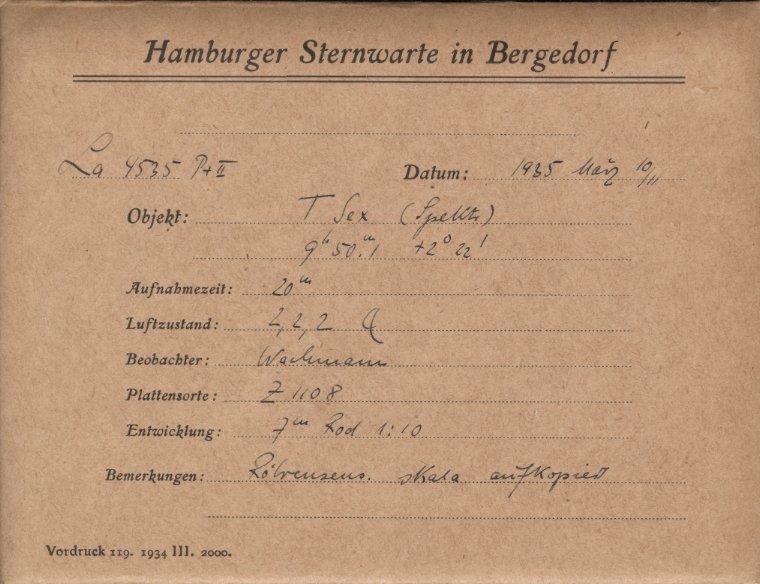 Hamburger Sternwarte in Bergedorf
La 4535 P+II Datum: 1935 März 10/11
Objekt: T Sex (Spektr)
9ʰ 50.ᵐ1 +2° 22'
Aufnahmezeit: 20ᵐ
Luftzustand: 2, 2, 2
Beobachter: Wachmann
Plattensorte: Z 1108
Entwicklung: 7ᵐ Rod 1:10
Bemerkungen: skala aufkopiert
Vordruck 119. 1934 III. 2000.